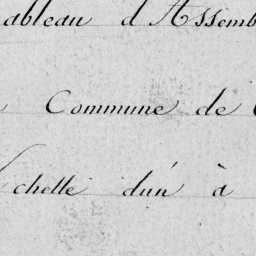 ableau d'Assemb
Commune de
chelle d'un à